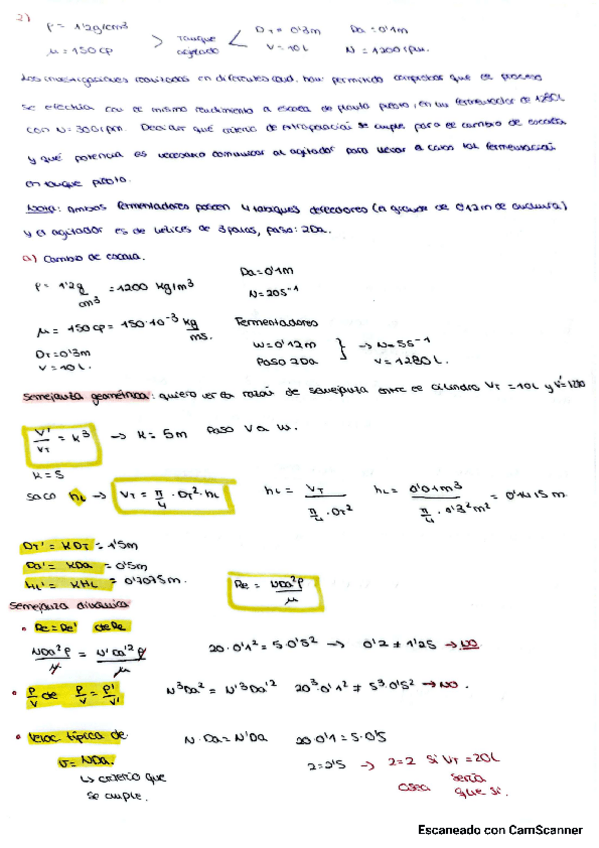 2)
ρ = 1'2g/cm3
μ = 150 cp
> tanque agitado <
DT = 0'3m Da = 0'1m
V = 10L N = 1200 rpm.
Las investigaciones realizadas en diferentes cond. han permitido comprobar que el proceso
se efectúa con el mismo rendimiento a escala de planta piloto, en un fermentador de 1280L
con N = 300 rpm. Deducir qué criterio de extrapolación se cumple para el cambio de escala
y qué potencia es necesario comunicar al agitador para llevar a cabo tal fermentación
en tanque piloto.
Nota: ambos fermentadores poseen 4 tabiques deflectores (el grande de 0'12m de anchura)
y el agitador es de hélices de 3 palas, paso: 2Da.
a) Cambio de escala.
ρ = 1'2g/cm3 = 1200 kg/m3
Da = 0'1m
N = 20s-1
μ = 150 cp = 150·10-3 kg/ms.
DT = 0'3m
V = 10L.
Fermentadores
W = 0'12m
Paso 2Da
} → N = 5s-1
V = 1280L.
Semejanza geométrica: quiero ver la razón de semejanza entre el cilindro VT = 10L y V' = 1280
V'/VT = k3 → k = 5m Paso V a W.
k = 5
saco hL → VT = π/4 · DT2 · hL
hL = VT / π/4 · DT2
hL = 0'01m3 / π/4 · 0'32m2 = 0'1415m.
DT' = KDT = 1'5m
Da' = KDa = 0'5m
hL' = KHL = 0'7075m.
Re = NDa2ρ / μ
Semejanza dinámica
• Re = Re' cte Re
NDa2ρ/μ = N'Da'2ρ/μ
20·0'12 = 5·0'52 → 0'2 ≠ 1'25 → NO
• P/V de P/V = P'/V'
N3Da2 = N'3Da'2 203·0'12 ≠ 53·0'52 → NO.
• Veloc típica de
v = NDa.
↳ criterio que
se cumple.
N·Da = N'Da' 20·0'1 = 5·0'5
2 = 2'5 → 2 = 2 Si VT = 20L
osea sería que si.
Escaneado con CamScanner